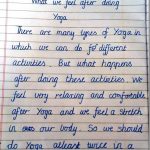 What we feel after doing
Yoga
There are many types of Yoga in
which we can do for different
activities. But what happens
after doing these activities. We
feel very relaxing and comfortable
after Yoga and we feel a stretch
in our body. So we should
do Yoga atleast twice in a